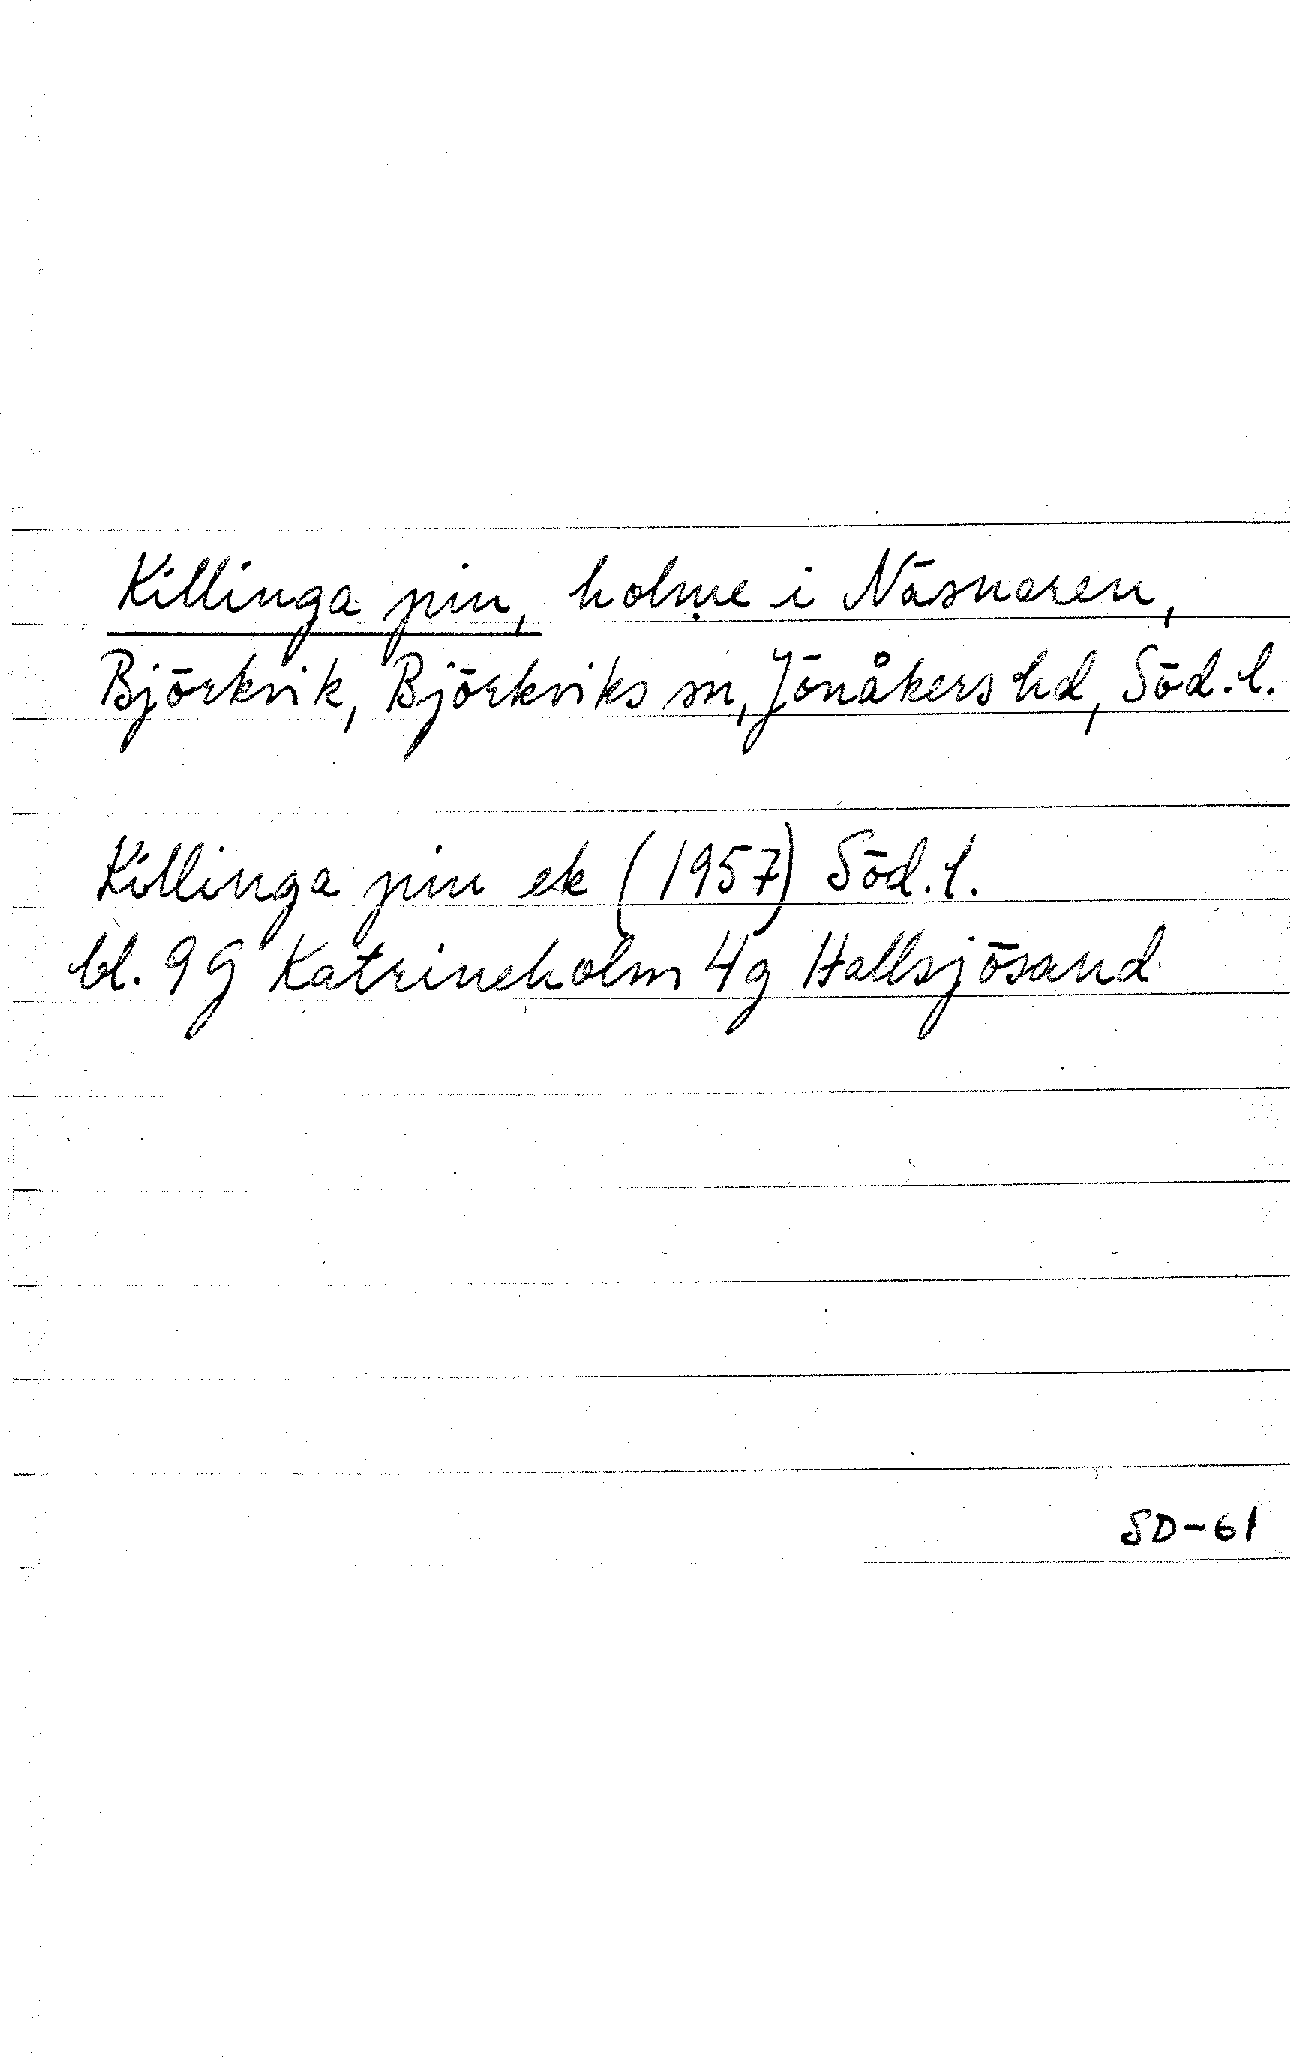 Killinga pin, holme i Näsnaren,
Björkvik, Björkviks sn, Jönåkers hd, Söd. l.
Killinga pin ek (1957) Söd. l.
bl. 9G Katrineholm 4g Hallsjösand
SD-61